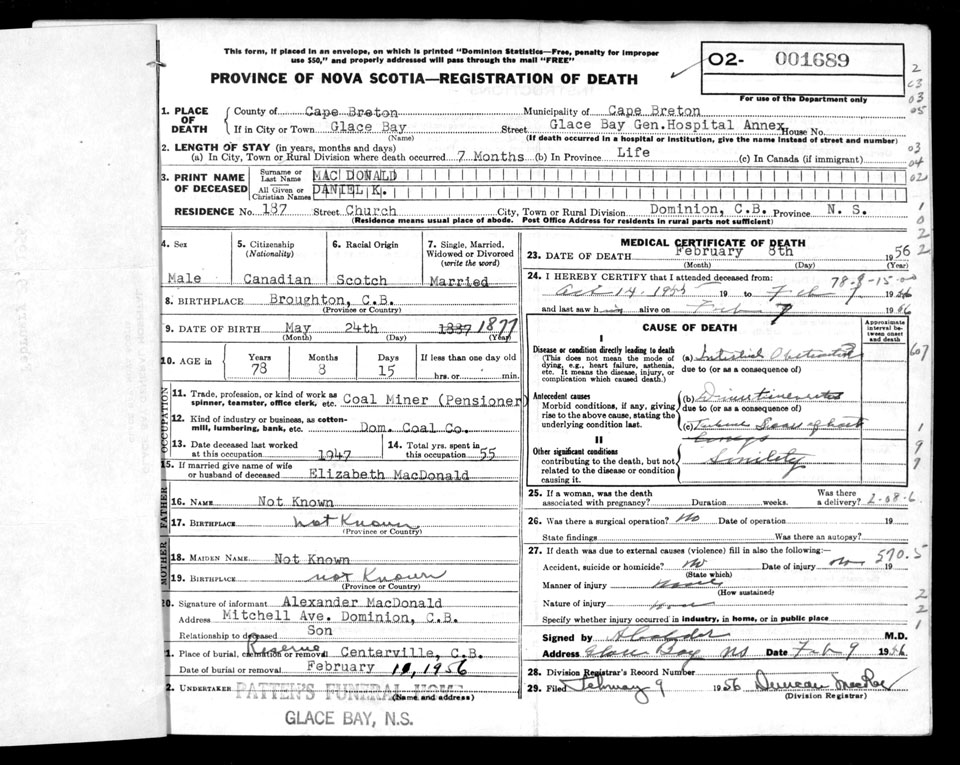 This form, if placed in an envelope, on which is printed "Dominion Statistics—Free, penalty for improper
use $50," and properly addressed will pass through the mail "FREE"
PROVINCE OF NOVA SCOTIA—REGISTRATION OF DEATH
O2- 001689
For use of the Department only
2
C3
03
05
03
04
02
1. PLACE OF DEATH
County of Cape Breton Municipality of Cape Breton
If in City or Town Glace Bay Street Glace Bay Gen.Hospital Annex House No.
(Name) (If death occurred in a hospital or institution, give the name instead of street and number)
2. LENGTH OF STAY (in years, months and days)
(a) In City, Town or Rural Division where death occurred 7 Months (b) In Province Life (c) In Canada (if immigrant)
3. PRINT NAME OF DECEASED
Surname or Last Name MAC DONALD
All Given or Christian Names DANIEL K.
RESIDENCE No. 137 Street Church City, Town or Rural Division Dominion, C.B. Province N. S.
(Residence means usual place of abode. Post Office Address for residents in rural parts not sufficient)
4. Sex 5. Citizenship (Nationality) 6. Racial Origin 7. Single, Married, Widowed or Divorced (write the word)
Male Canadian Scotch Married
8. BIRTHPLACE Broughton, C.B.
(Province or Country)
9. DATE OF BIRTH May 24th 1887 1877
(Month) (Day) (Year)
10. AGE in Years Months Days If less than one day old
78 8 15 hrs. or min.
OCCUPATION
11. Trade, profession, or kind of work as spinner, teamster, office clerk, etc. Coal Miner (Pensioner)
12. Kind of industry or business, as cotton-mill, lumbering, bank, etc. Dom. Coal Co.
13. Date deceased last worked at this occupation 1947
14. Total yrs. spent in this occupation 55
15. If married give name of wife or husband of deceased Elizabeth MacDonald
FATHER
16. NAME Not Known
17. BIRTHPLACE Not Known
(Province or Country)
MOTHER
18. MAIDEN NAME Not Known
19. BIRTHPLACE not Known
(Province or Country)
20. Signature of informant Alexander MacDonald
Address Mitchell Ave. Dominion, C.B.
Relationship to deceased Son
1. Place of burial, cremation or removal Reserve Centerville, C.B.
Date of burial or removal February 1956
2. UNDERTAKER PATTEN'S FUNERAL HOME
(Name and address)
GLACE BAY, N.S.
MEDICAL CERTIFICATE OF DEATH
23. DATE OF DEATH February 8th 1956
(Month) (Day) (Year)
24. I HEREBY CERTIFY that I attended deceased from: 78-8-15
Oct 14, 1955 19 to Feb 1956
and last saw h alive on Feb 7 1956
CAUSE OF DEATH
Approximate interval between onset and death
I
Disease or condition directly leading to death
(This does not mean the mode of dying, e.g., heart failure, asthenia, etc. It means the disease, injury, or complication which caused death.)
(a) Intestinal Obstruction
due to (or as a consequence of)
Antecedent causes
Morbid conditions, if any, giving rise to the above cause, stating the underlying condition last.
(b)
due to (or as a consequence of)
(c)
II
Other significant conditions
contributing to the death, but not related to the disease or condition causing it.
Senility
25. If a woman, was the death associated with pregnancy? Duration weeks. Was there a delivery?
26. Was there a surgical operation? No Date of operation 19
State findings Was there an autopsy?
27. If death was due to external causes (violence) fill in also the following:— 570.5
Accident, suicide or homicide? No Date of injury 19
(State which)
Manner of injury none
(How sustained)
Nature of injury none
Specify whether injury occurred in industry, in home, or in public place
Signed by M.D.
Address Glace Bay NS Date Feb 9 1956
28. Division Registrar's Record Number
29. Filed February 9 1956 Duncan MacRae
(Division Registrar)